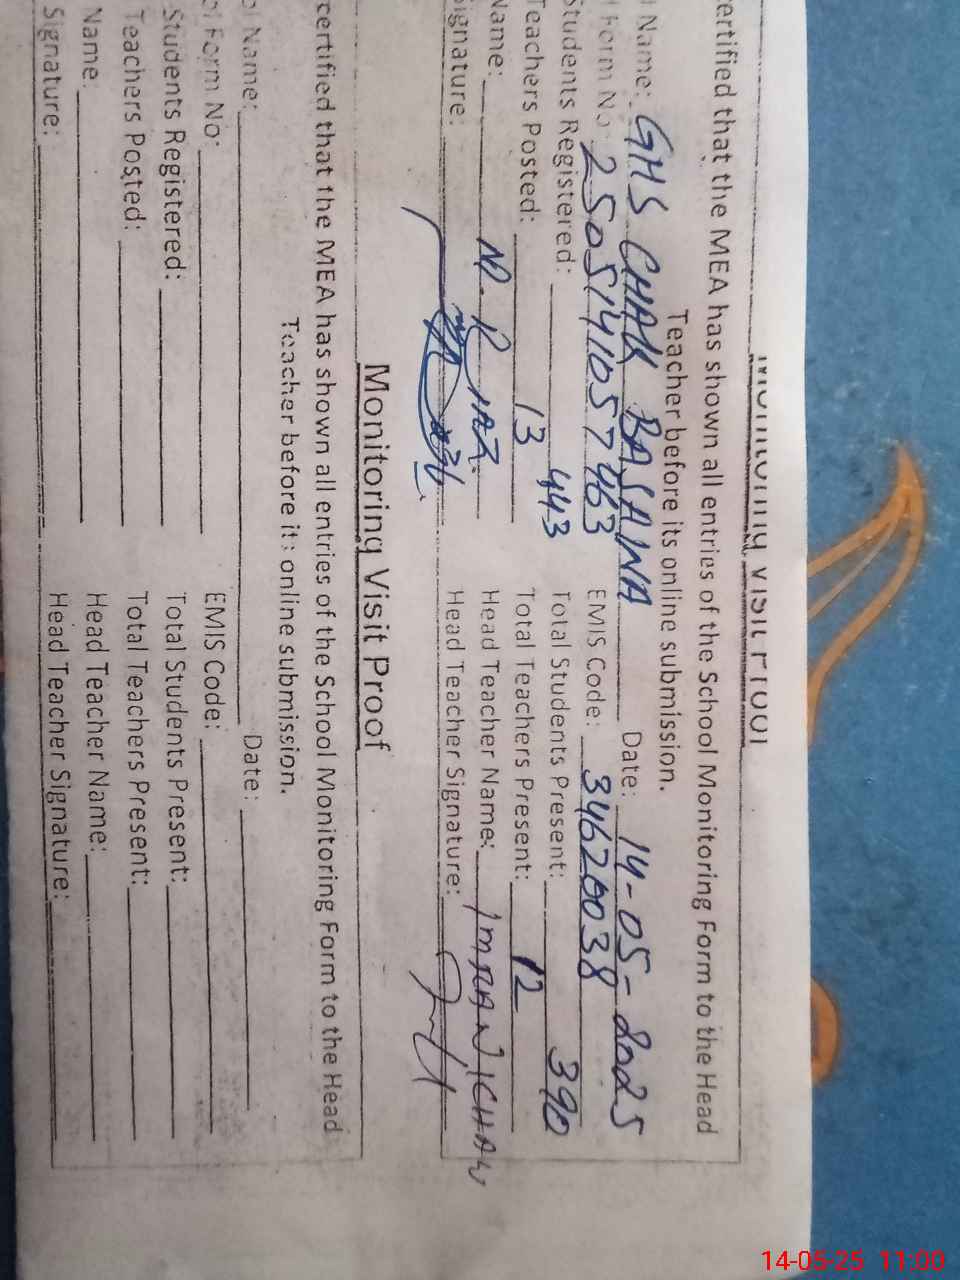 Monitoring Visit Proof
certified that the MEA has shown all entries of the School Monitoring Form to the Head
Teacher before its online submission.
l Name: GHS CHAK BASAWA Date: 14-05-2025
l Form No: 2505141057463 EMIS Code: 34620038
Students Registered: 443 Total Students Present: 390
Teachers Posted: 13 Total Teachers Present: 12
Name: M. RIAZ Head Teacher Name: IMRAN
Signature: Head Teacher Signature:
Monitoring Visit Proof
certified that the MEA has shown all entries of the School Monitoring Form to the Head
Teacher before its online submission.
ol Name: Date:
ol Form No: EMIS Code:
Students Registered: Total Students Present:
Teachers Posted: Total Teachers Present:
Name: Head Teacher Name:
Signature: Head Teacher Signature:
14-05-25 11:00